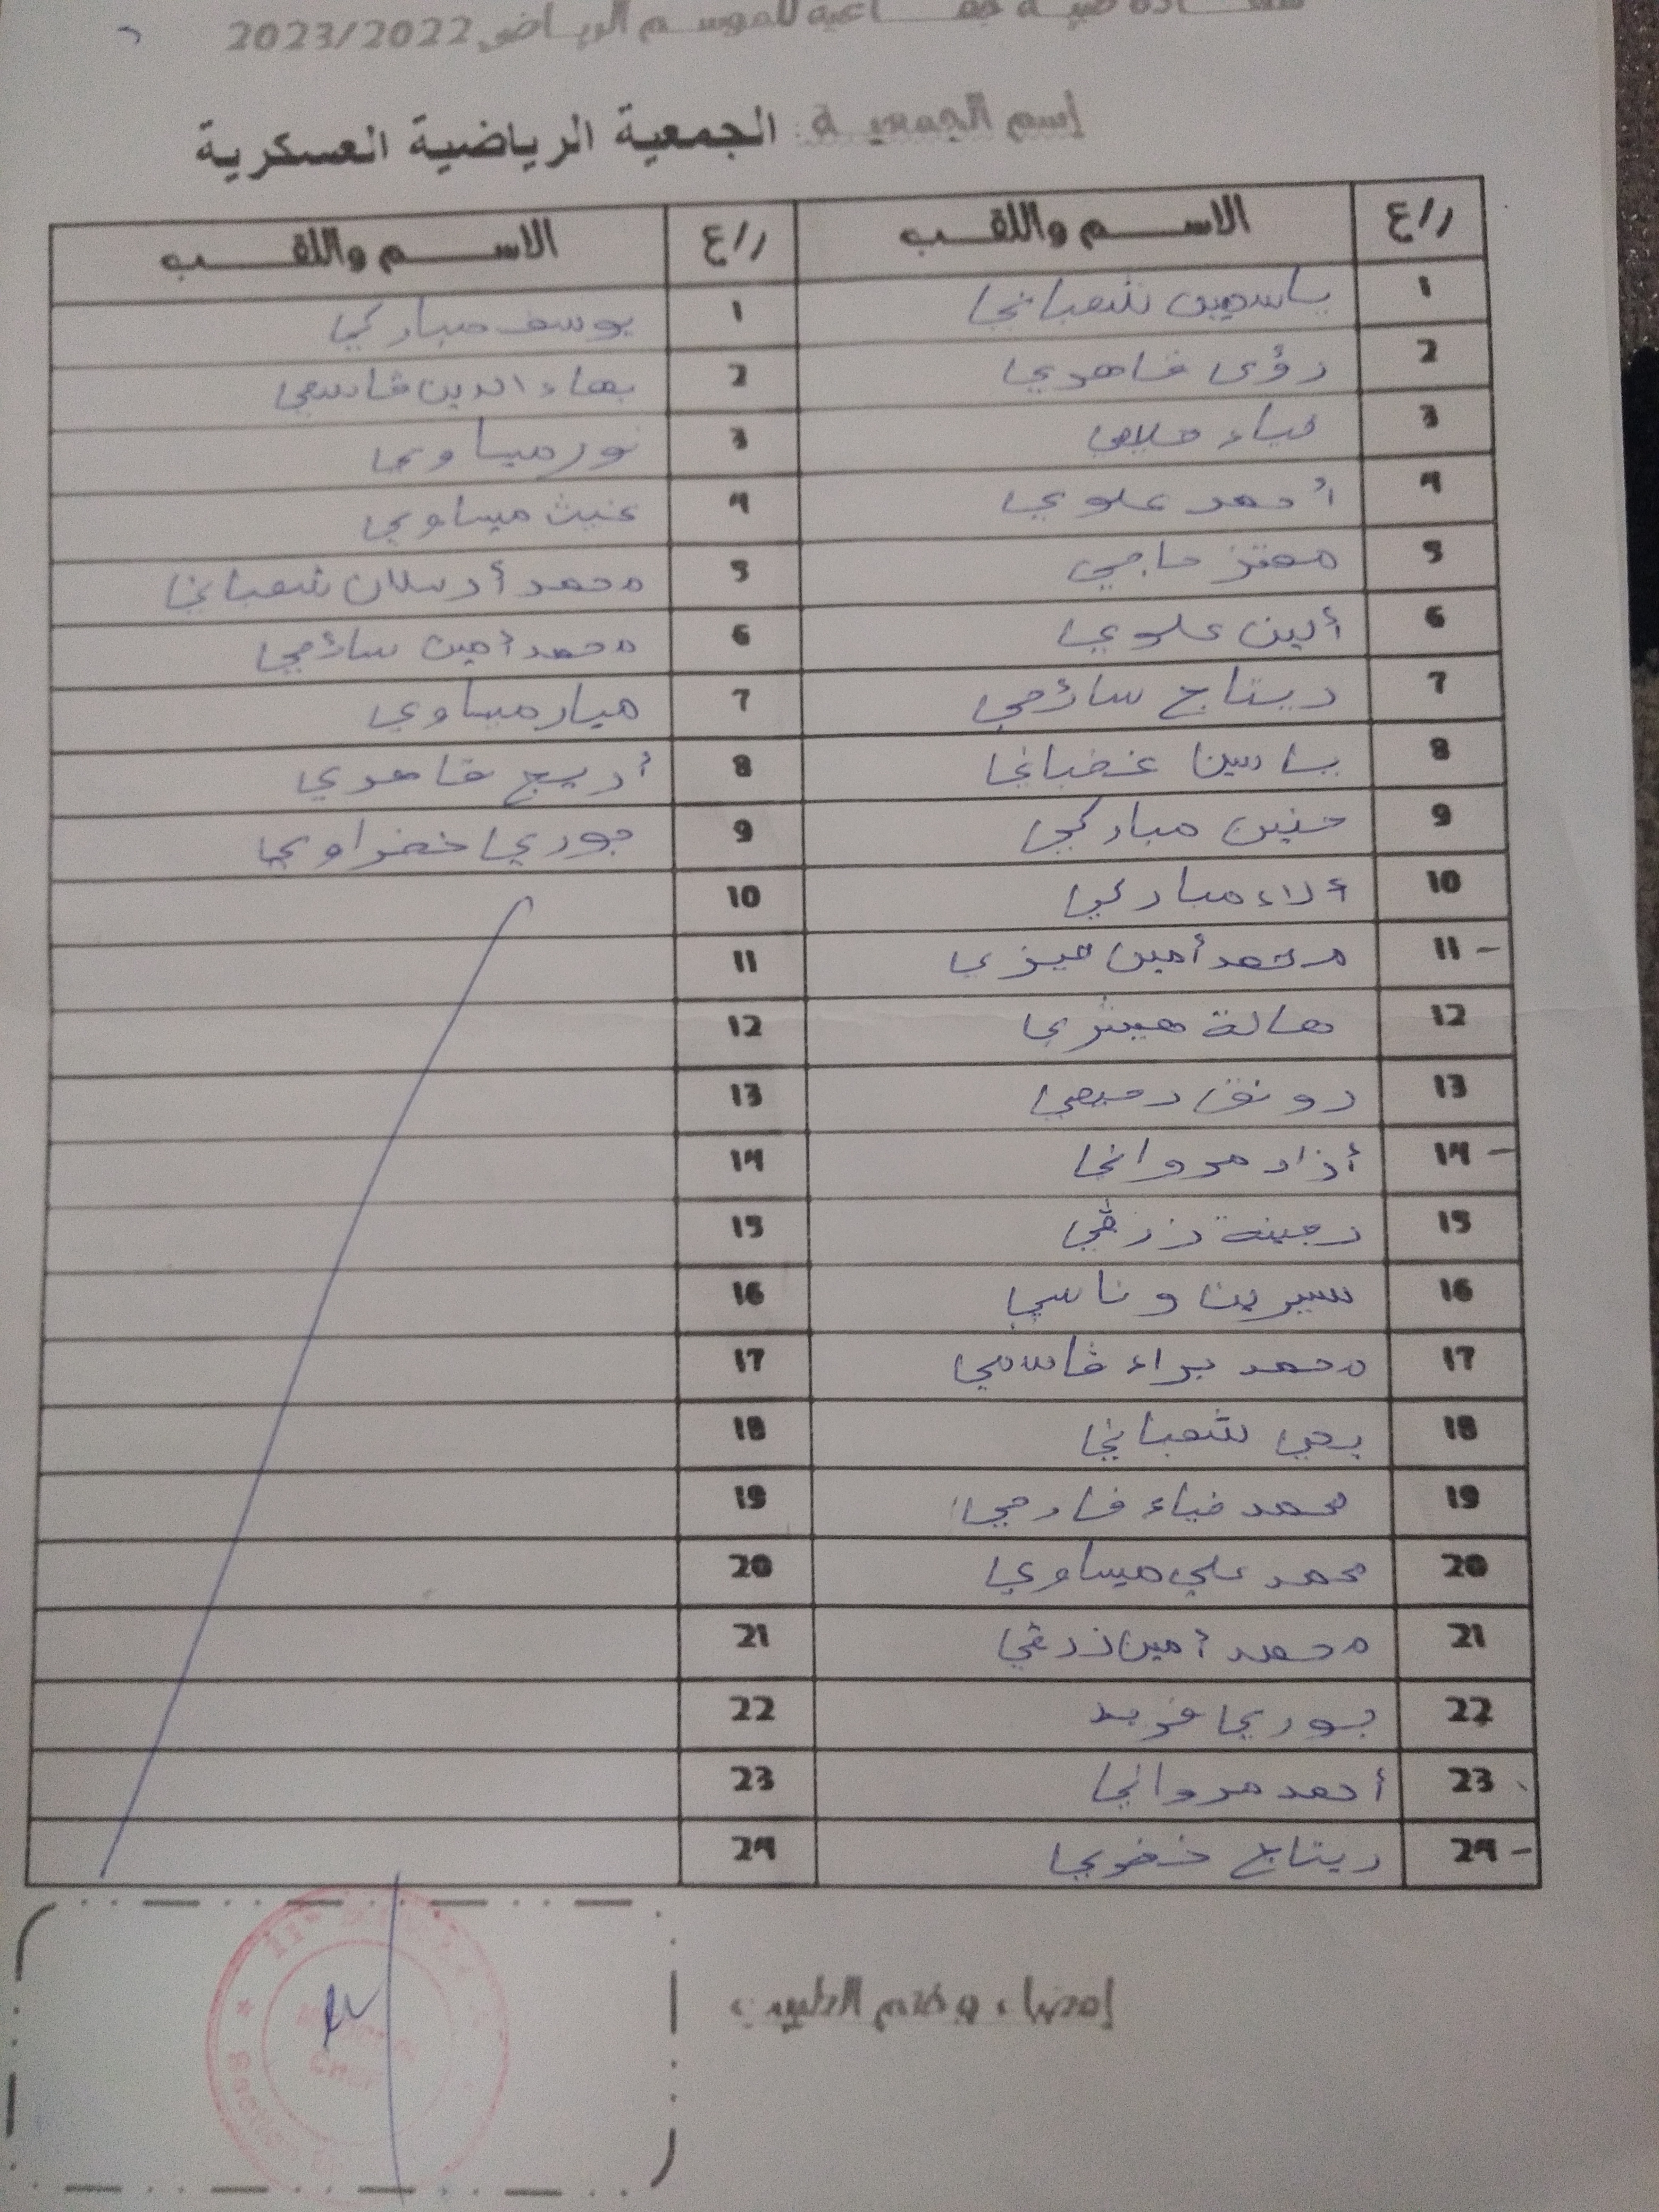 شهادة طبية جماعية للموسم الرياضي 2023/2022
إسم الجمعية : الجمعية الرياضية العسكرية
ر/ع الاسم واللقب ر/ع الاسم واللقب
1 ياسمين شعباني 1 يوسف مباركي
2 رؤى قاهري 2 بهاء الدين قاسمي
3 ضياء 3 نور ميساوي
4 أحمد علوي 4 غيث ميساوي
5 معتز حاجي 5 محمد أرسلان شعباني
6 ألين علوي 6 محمد أمين سائحي
7 ريتاج سائحي 7 ميار ميساوي
8 ياسين غضباني 8 أريج قاهري
9 حنين مباركي 9 جوري خضراوي
10 ألاء مباركي 10
11 محمد أمين ميزي 11
12 هالة هيشري 12
13 رونق رميحي 13
14 أزاد مرواني 14
15 زرقي 15
16 سيرين وناسي 16
17 محمد براء قاسمي 17
18 يحي شعباني 18
19 محمد ضياء فارحي 19
20 محمد علي ميساوي 20
21 محمد أمين زرقي 21
22 جوري فريد 22
23 أحمد مرواني 23
24 ريتاج 24
إمضاء وختم الطبيب